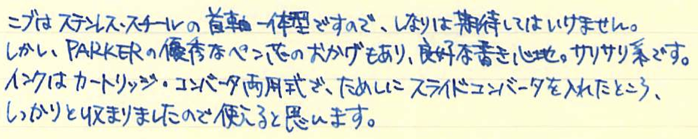 ニブはステンレス・スチールの首軸一体型ですので、しなりは期待してはいけません。
しかし、PARKERの優秀なペン芯のおかげもあり、良好な書き心地。サリサリ系です。
インクはカートリッジ・コンバータ両用式で、ためしにスライドコンバータを入れたところ、
しっかりと収まりましたので使えると思います。